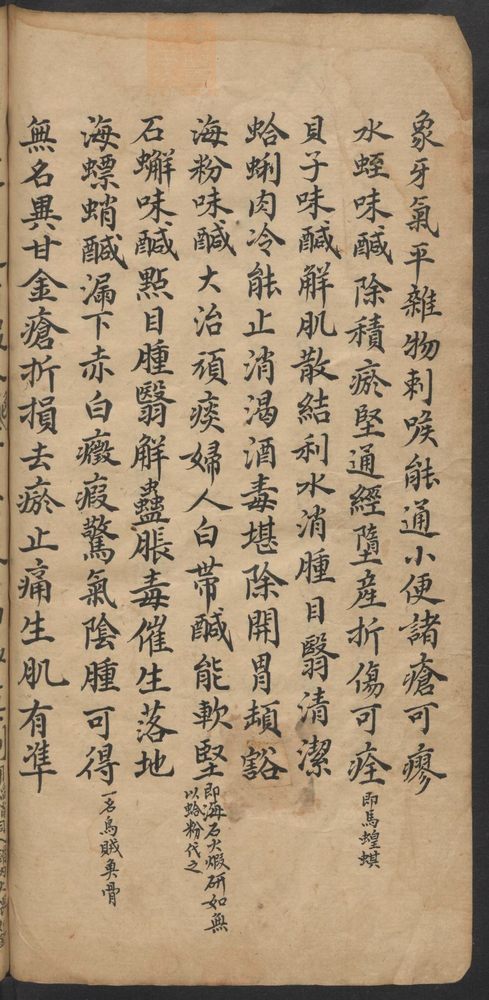 象牙氣平雜物刺喉能通小便諸瘡可瘳
水蛭味鹹除積瘀堅通經墮産折傷可痊即馬蝗蜞
貝子味鹹解肌散結利水消腫目翳清潔
蛤蜊肉冷能止消渴酒毒堪除開胃頓豁
海粉味鹹大治頑痰婦人白帶鹹能軟堅即海石火煅研如無
以蛤粉代之
石蠏味鹹點目腫翳解蠱脹毒催生落地
海螵蛸鹹漏下赤白癥瘕驚氣陰腫可得一名烏賊奐骨
無名異甘金瘡折損去瘀止痛生肌有凖